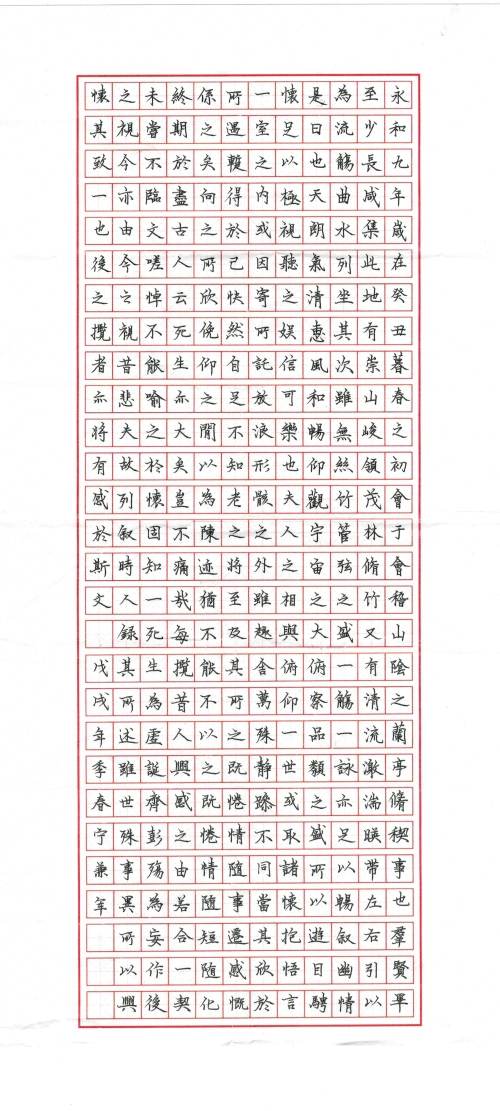 永和九年歲在癸丑暮春之初會于會稽山陰之蘭亭脩稧事也羣賢畢
至少長咸集此地有崇山峻領茂林脩竹又有清流激湍暎帶左右引以
為流觴曲水列坐其次雖無絲竹管弦之盛一觴一詠亦足以暢叙幽情
是日也天朗氣清惠風和暢仰觀宇宙之大俯察品類之盛所以遊目騁
懷足以極視聽之娛信可樂也夫人之相與俯仰一世或取諸懷抱悟言
一室之内或因寄所託放浪形骸之外雖趣舍萬殊静躁不同當其欣於
所遇暫得於己快然自足不知老之將至及其所之既惓情随事遷感慨
係之矣向之所欣俛仰之閒以為陳迹猶不能不以之既惓情随短随化
終期於盡古人云死生亦大矣豈不痛哉每攬昔人興感之由若合一契
未當不臨文嗟悼不能喻之於懷固知一死生為虛誕齊彭殤為妄作後
之視今亦由今之視昔悲夫故列叙時人錄其所述雖世殊事異所以興
懷其致一也後之攬者亦將有感於斯文戊戌年季春宁兼年